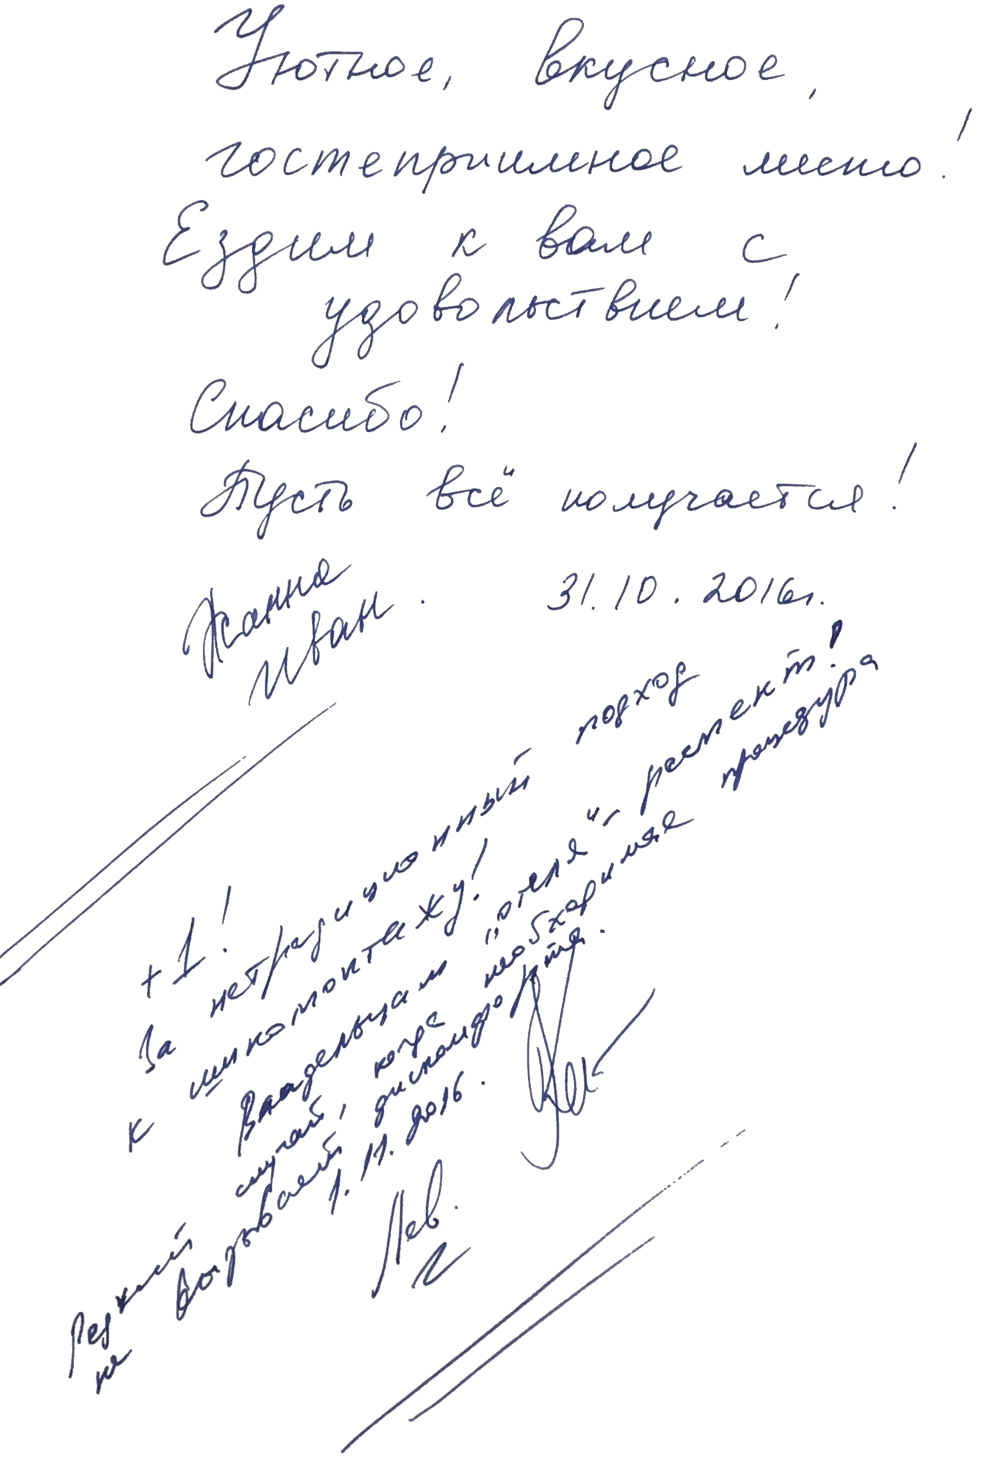 Уютное, вкусное,
гостеприимное место!
Ездим к вам с
удовольствием!
Спасибо!
Пусть всё получается!
Жанна
Иван.
31.10.2016г.
+1!
За нетрадиционный подход
к шкомонтажу!
Владельцам „отеля“ - респект!
Редкий случай, когда необходимая процедура
не вызывает дискомфорта.
1.11.2016.
Лев.